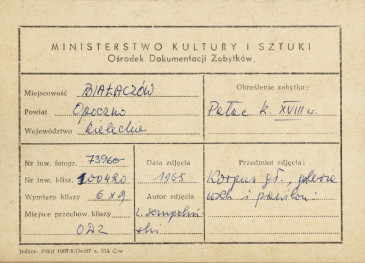 MINISTERSTWO KULTURY I SZTUKI
Ośrodek Dokumentacji Zabytków
Miejscowość BIAŁACZÓW
Powiat Opoczno
Województwo kieleckie
Określenie zabytku:
Pałac k. XVIII w.
Nr inw. fotogr. 73960
Nr inw. klisz. 100420
Wymiary kliszy 6x9
Miejsce przechow. kliszy
ODZ
Data zdjęcia
1965
Autor zdjęcia
Przedmiot zdjęcia:
Korpus gł., galeria
wsch i pawilon